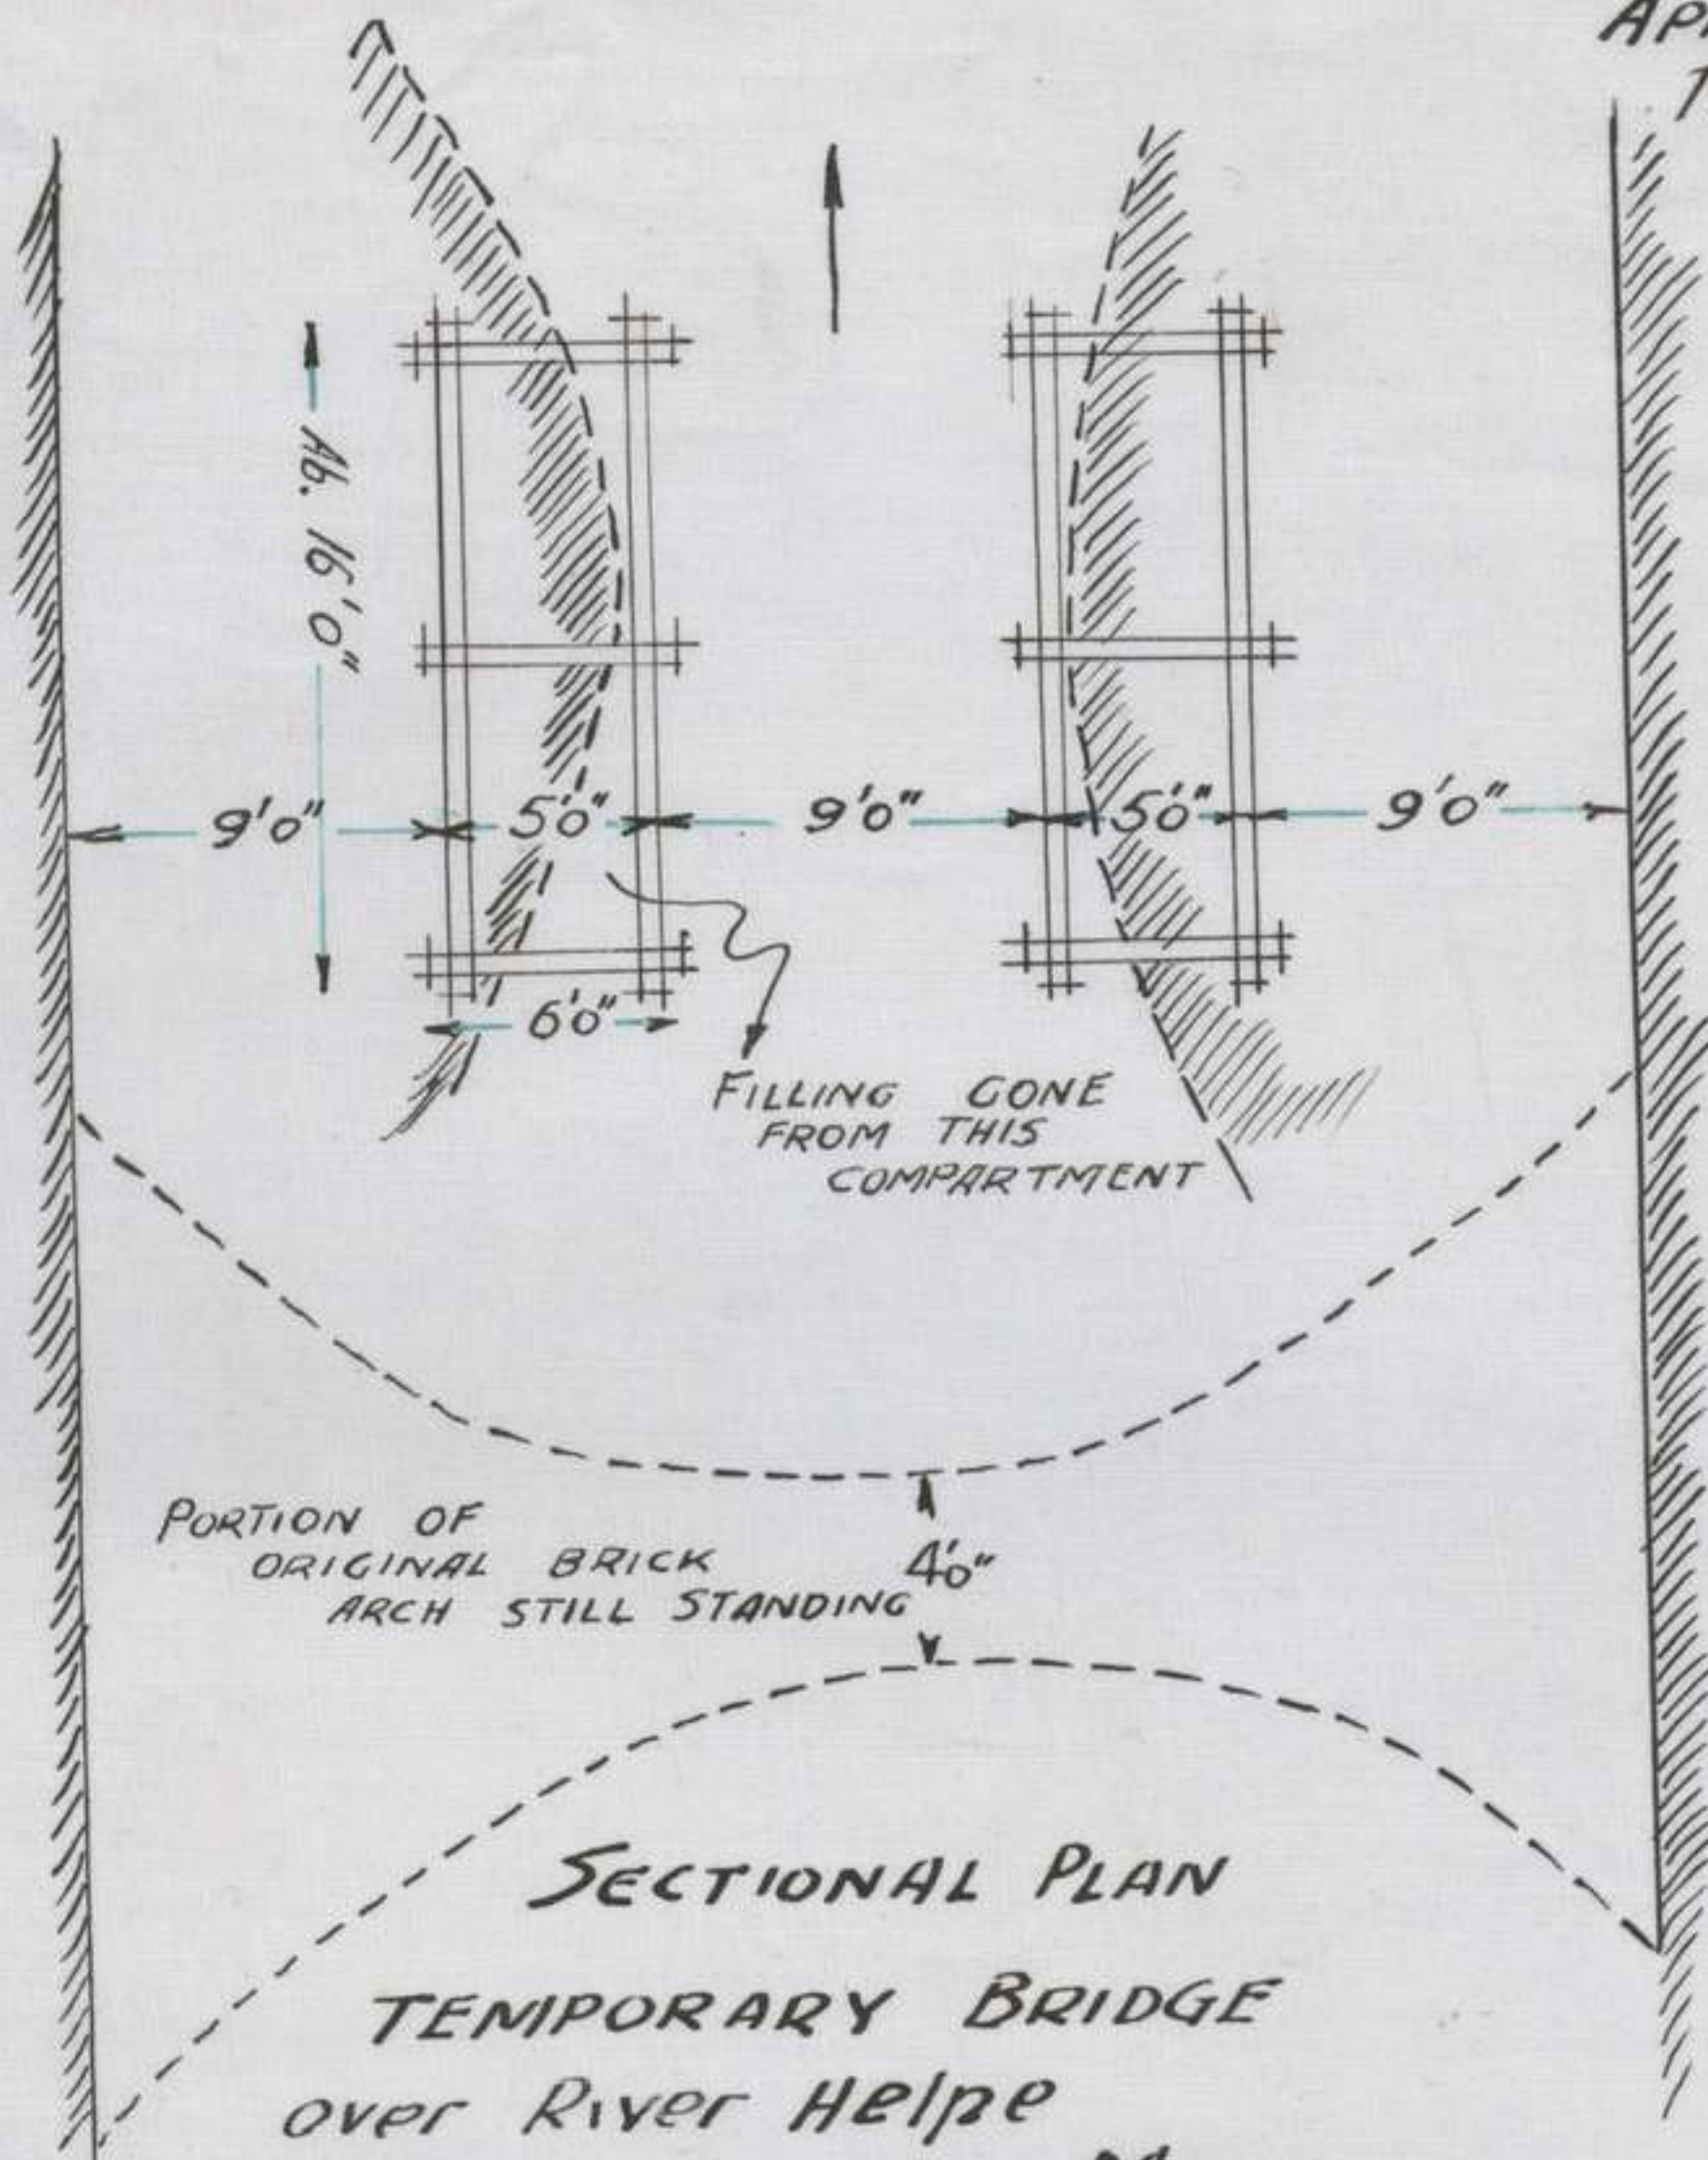 Ab. 16'0"
9'0" 5'0" 9'0" 5'0" 9'0"
6'0"
FILLING GONE
FROM THIS
COMPARTMENT
PORTION OF
ORIGINAL BRICK
ARCH STILL STANDING
4'0"
SECTIONAL PLAN
TEMPORARY BRIDGE
over River Helpe